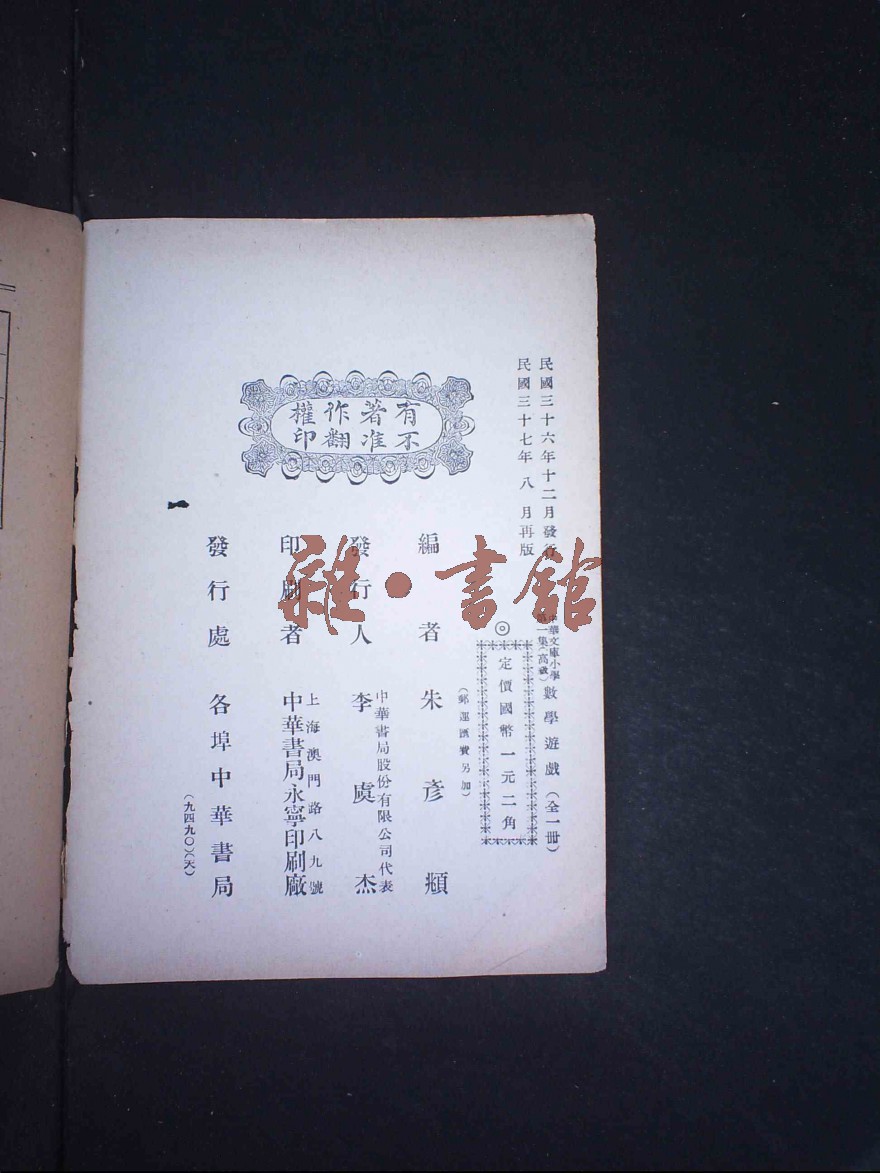 民國三十六年十二月發行
民國三十七年八月再版
中華文庫小學
第一集(高級)
數學遊戲(全一冊)
◎
定價國幣一元二角
(郵運匯費另加)
有著作權
不准翻印
編者 朱彥頫
中華書局股份有限公司代表
發行人 李虞杰
上海澳門路八九號
印刷者 中華書局永寧印刷廠
發行處 各埠中華書局
(九四九〇)(天)
雜·書館